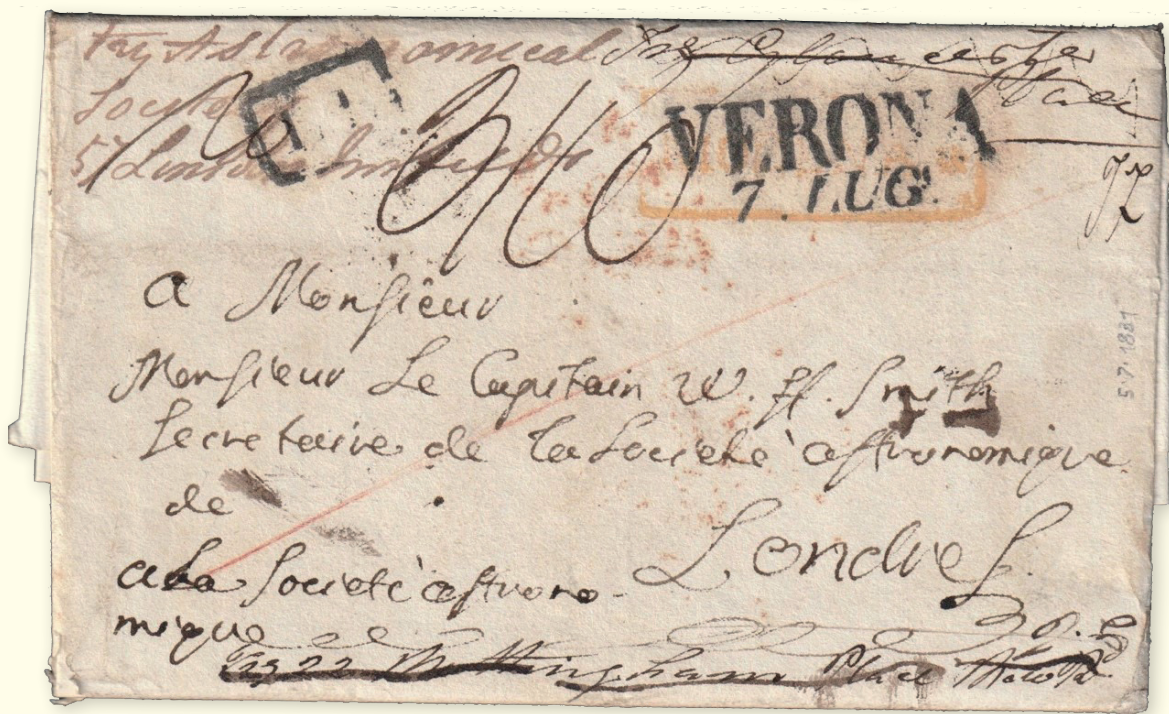 Try Astronomical
Society
57 Lincolns Inn Fields
Try
VERONA
7. LUG.
3/10
a Monsieur
Monsieur Le Capitain W. H. Smith
Secretaire de la Societè astronomique
de
Londres.
a La Societè astrono-
mique
Try 22 Nottingham Place
5.7.1831